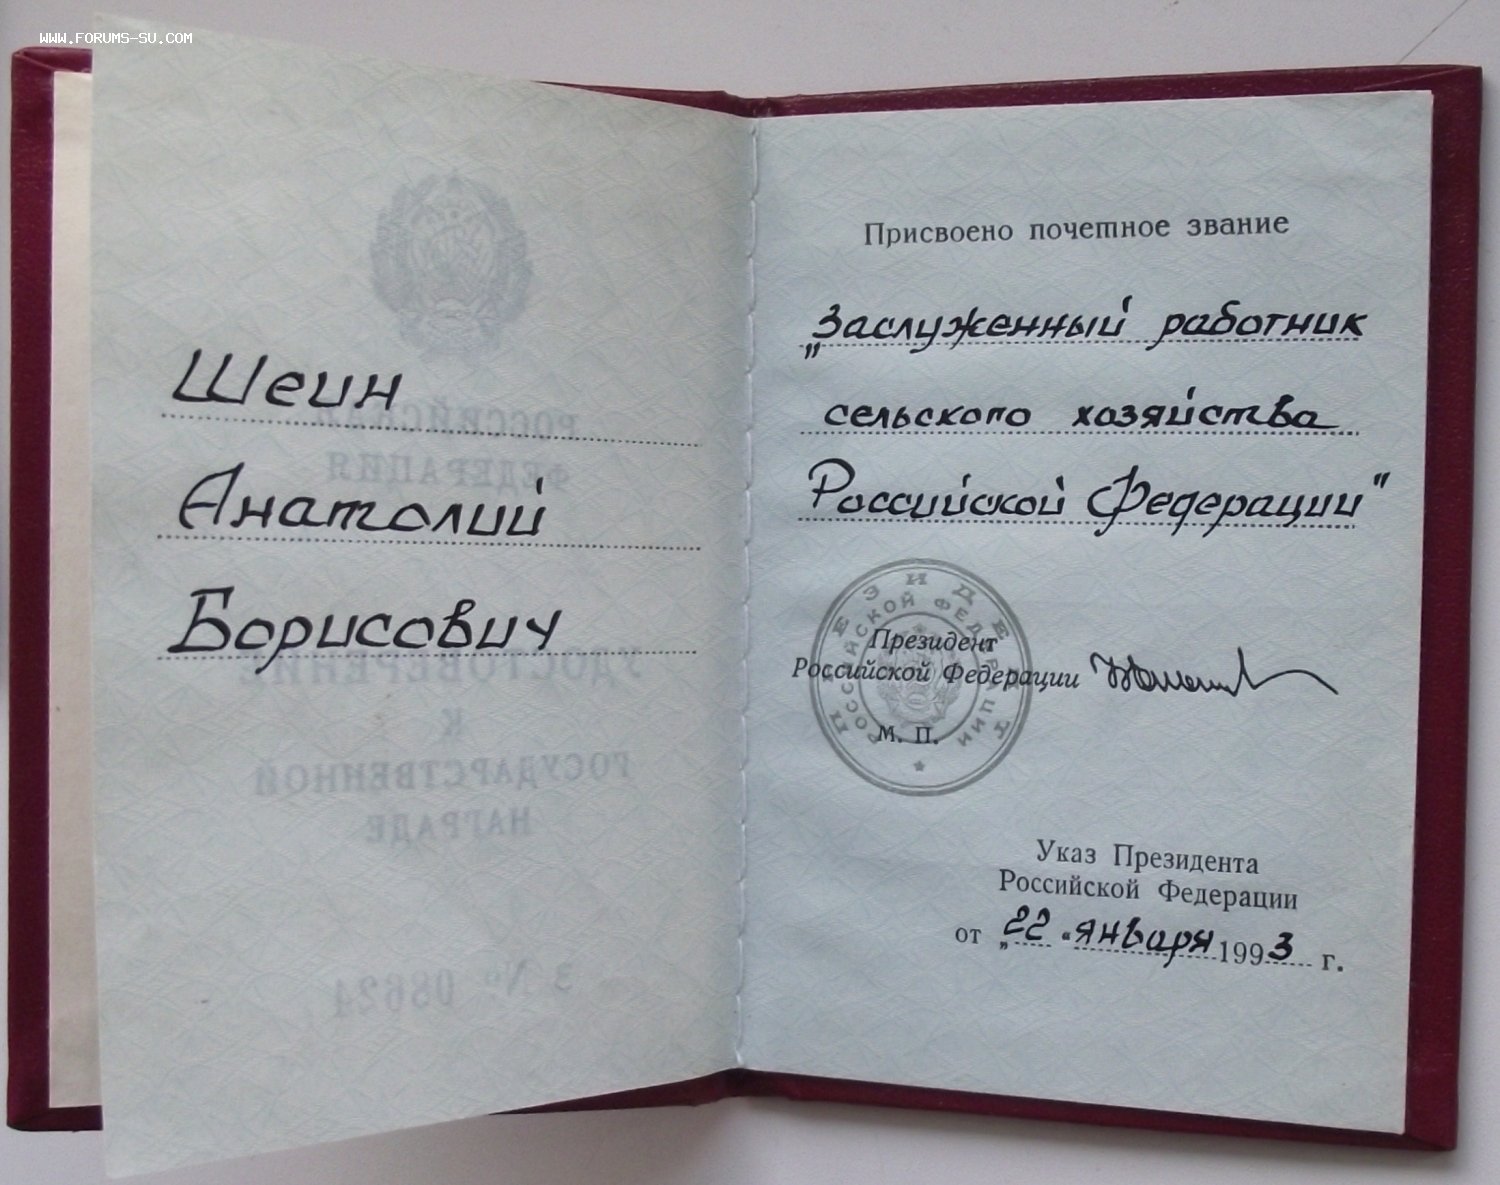 WWW.FORUMS-SU.COM
Шеин
Анатолий
Борисович
РОССИЙСКАЯ
ФЕДЕРАЦИЯ
УДОСТОВЕРЕНИЕ
К
ГОСУДАРСТВЕННОЙ
НАГРАДЕ
З № 08624
Присвоено почетное звание
„Заслуженный работник
сельского хозяйства
Российской Федерации"
ПРЕЗИДЕНТ
РОССИЙСКОЙ ФЕДЕРАЦИИ
Президент
Российской Федерации
М. П.
Указ Президента
Российской Федерации
от „22“ января 1993 г.